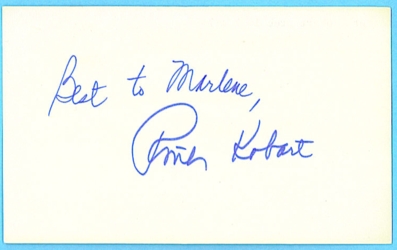 Best to Marlene,
Ruth Kobart